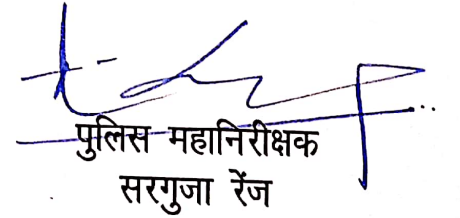 पुलिस महानिरीक्षक
सरगुजा रेंज